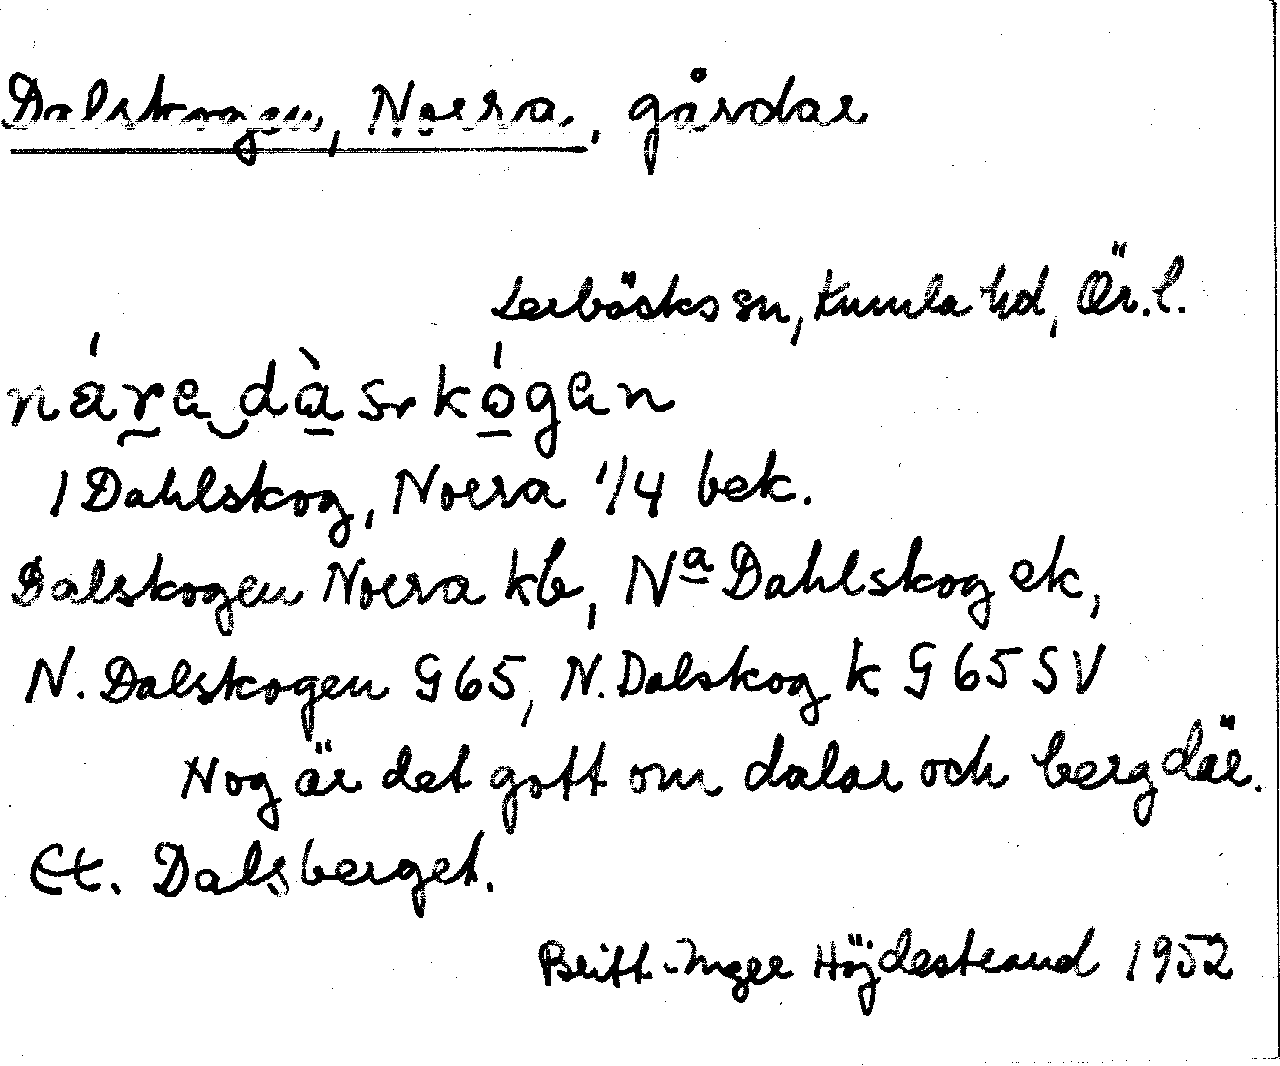 Dalskogen, Norra, gårdar
Lerbäcks sn, Kumla hd, Ör.l.
nára dàskógen
1 Dahlskog, Norra 1/4 bek.
Dalskogen Norra kb, Na Dahlskog ek,
N. Dalskogen G65, N. Dalskog k G65SV
Nog är det gott om dalar och berg där.
Et. Dalsberget.
Britt-Inger Höjdestrand 1952